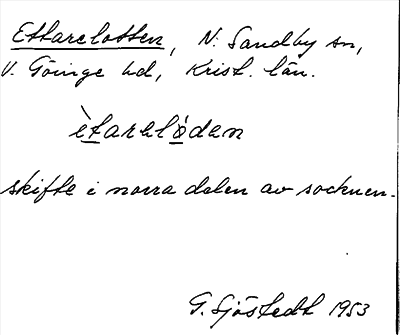 Ettarelotten, N. Sandby sn,
V. Göinge hd, Krist. län.
ètarelòden
skifte i norra delen av socknen.
G. Sjöstedt 1953